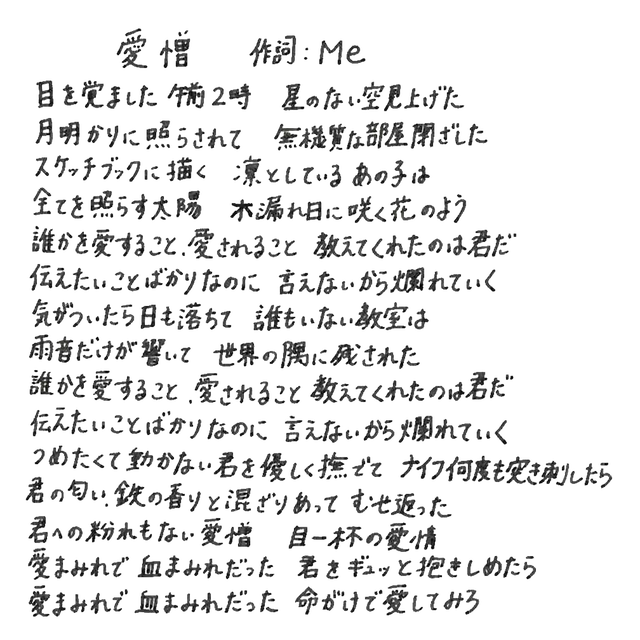 愛憎 作詞:Me
目を覚ました 午前2時 星のない空見上げた
月明かりに照らされて 無機質な部屋閉ざした
スケッチブックに描く 凛としているあの子は
全てを照らす太陽 木漏れ日に咲く花のよう
誰かを愛すること、愛されること 教えてくれたのは君だ
伝えたいことばかりなのに 言えないから爛れていく
気がついたら日も落ちて 誰もいない教室は
雨音だけが響いて 世界の隅に残された
誰かを愛すること、愛されること 教えてくれたのは君だ
伝えたいことばかりなのに 言えないから爛れていく
つめたくて動かない君を優しく撫でて ナイフ何度も突き刺したら
君の匂い、鉄の香りと混ざりあって むせ返った
君への紛れもない愛憎 目一杯の愛情
愛まみれで 血まみれだった 君をギュッと抱きしめたら
愛まみれで 血まみれだった 命がけで愛してみろ